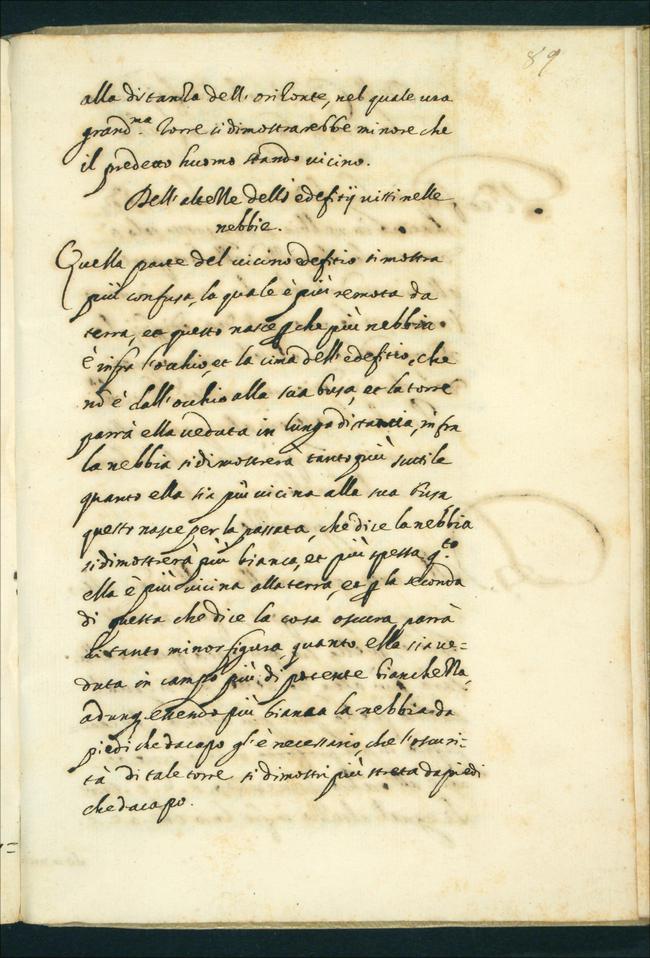 89
alla distanza dell'orizonte, nel quale una
grand.ma Torre si dimostrarebbe minore che
il predetto huomo stando vicino.
Dell'altezze delli edefitij visti nelle
nebbie.
Quella parte del vicino edefitio si mostra
più confusa, la quale è più remota da
terra, et questo nasce p che più nebbia
è infra l'occhio, et la cima dell'edefitio, che
nō è dall'occhio alla sua basa, et la torre
parrà ella veduta in lunga distantia, infra
la nebbia si dimostrerà tanto più sutile
quanto ella sia più vicina alla sua basa
questo nasce per la passata, che dice la nebbia
si dimostrerà più bianca, et più spessa q.to
ella è più vicina alla terra, et p la seconda
di questa che dice la cosa oscura parrà
di tanto minor figura, quanto ella sia ve=
duta in campo più di potente bianchezza,
adunq essendo più bianca la nebbia da
piedi che da capo gl'è necessario, che l'oscuri=
tà di tale torre si dimostri più streta da piedi
che da capo.